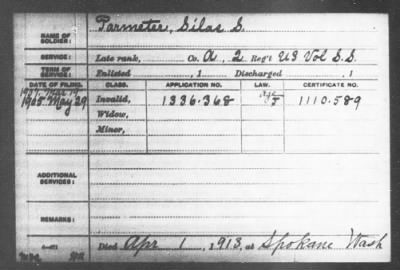 Parmeter, Silas S.
NAME OF SOLDIER:
SERVICE: Late rank, Co. A, 2 Reg't US Vol S.S.
TERM OF SERVICE: Enlisted , 1 Discharged , 1
DATE OF FILING. CLASS. APPLICATION NO. LAW. CERTIFICATE NO.
1907. Mar 19
1905 May 29 Invalid, 1336.368 1110.589
Widow,
Minor,
ADDITIONAL SERVICES:
REMARKS:
Died Apr 1, 1913, at Spokane Wash